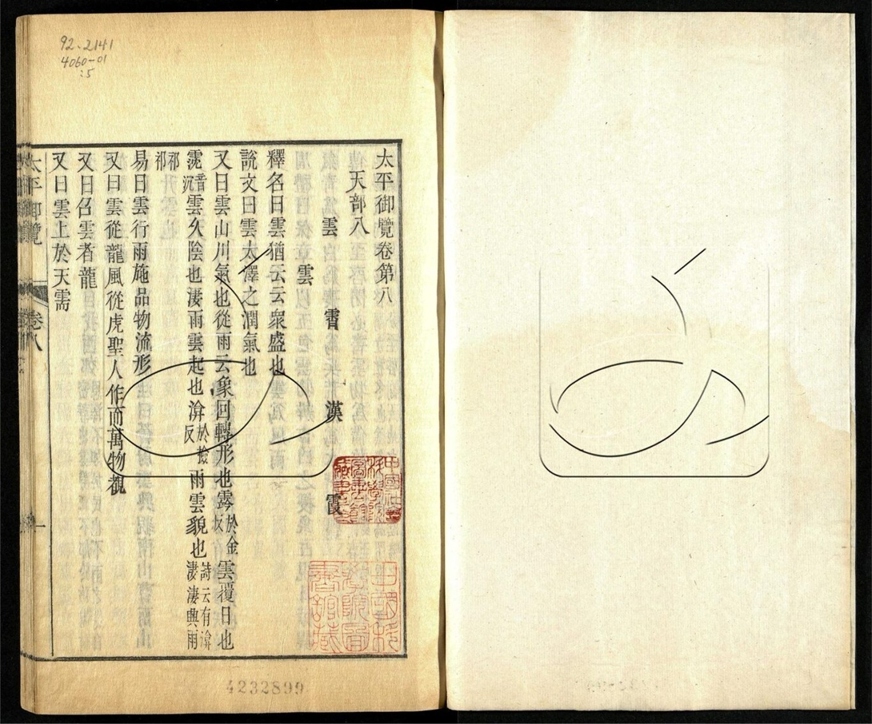 92-2141
4060-01
:5
太平御覽卷第八
天部八
雲 雲 霄 漢 霞
釋名曰雲猶云云衆盛也
說文曰雲大澤之潤氣也
又曰雲山川氣也從雨云象回轉形也霒於金反雲覆日也
霃音沉雲久陰也淒雨雲起也渰於撿反雨雲貌也詩云有渰淒淒興雨祁祁
易曰雲行雨施品物流形
又曰雲從龍風從虎聖人作而萬物覩
又曰召雲者龍
又曰雲上於天需
太平御覽 卷八 一
4232899